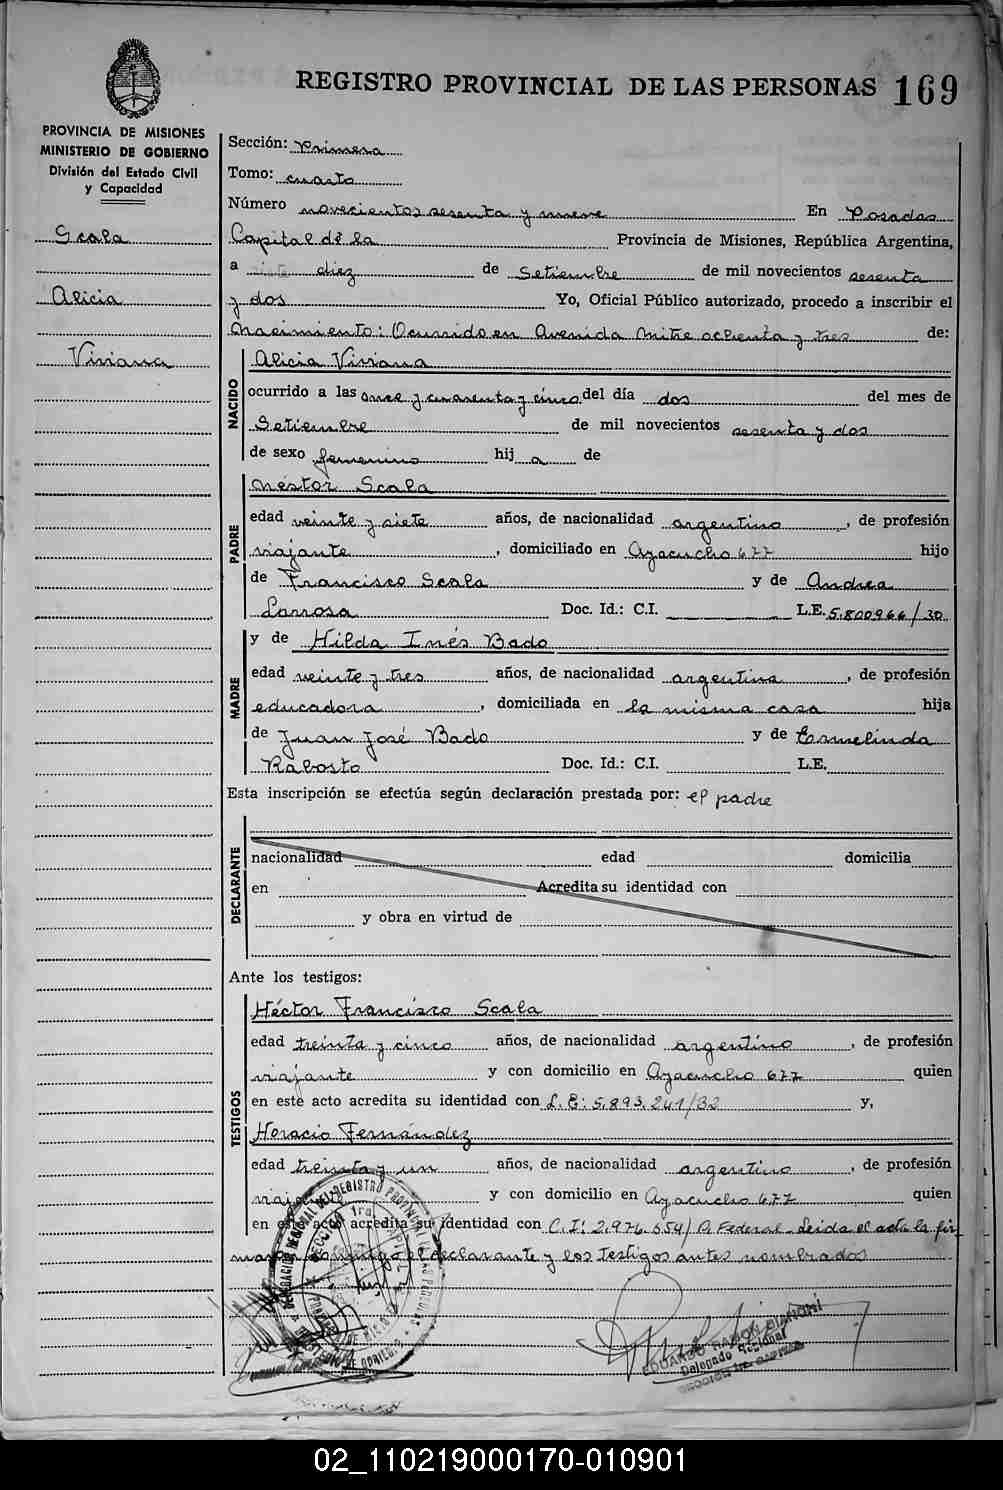 REGISTRO PROVINCIAL DE LAS PERSONAS 169
PROVINCIA DE MISIONES
MINISTERIO DE GOBIERNO
División del Estado Civil
y Capacidad
Scala
Alicia
Viviana
Sección: Primera
Tomo: cuarto
Número novecientos sesenta y nueve En Posadas
Capital de la Provincia de Misiones, República Argentina,
a diez de Setiembre de mil novecientos sesenta
y dos Yo, Oficial Público autorizado, procedo a inscribir el
Nacimiento: Ocurrido en Avenida Mitre ochenta y tres de:
NACIDO
Alicia Viviana
ocurrido a las once y cuarenta y cinco del día dos del mes de
Setiembre de mil novecientos sesenta y dos
de sexo femenino hij a de
PADRE
Néstor Scala
edad veinte y siete años, de nacionalidad argentino, de profesión
viajante, domiciliado en Ayacucho 677 hijo
de Francisco Scala y de Andrea
Larrosa Doc. Id.: C.I. L.E. 5.800966/30
MADRE
y de Hilda Inés Bado
edad veinte y tres años, de nacionalidad argentina, de profesión
educadora, domiciliada en la misma casa hija
de Juan José Bado y de Ermelinda
Rabosto Doc. Id.: C.I. L.E.
Esta inscripción se efectúa según declaración prestada por: el padre
DECLARANTE
nacionalidad edad domicilia
en Acredita su identidad con
y obra en virtud de
Ante los testigos:
TESTIGOS
Héctor Francisco Scala
edad treinta y cinco años, de nacionalidad argentino, de profesión
viajante y con domicilio en Ayacucho 677 quien
en este acto acredita su identidad con L.E: 5.893.241/32 y,
Horacio Fernández
edad treinta y un años, de nacionalidad argentino, de profesión
viajante y con domicilio en Ayacucho 677 quien
en este acto acredita su identidad con C.I: 2.976.554/ P. Federal. Leida el acta la fir
man conmigo el declarante y los testigos antes nombrados
EDUARDO RAMON BIANCHI
Delegado Regional
SECCION 1ra. CAPITAL
02_110219000170-010901